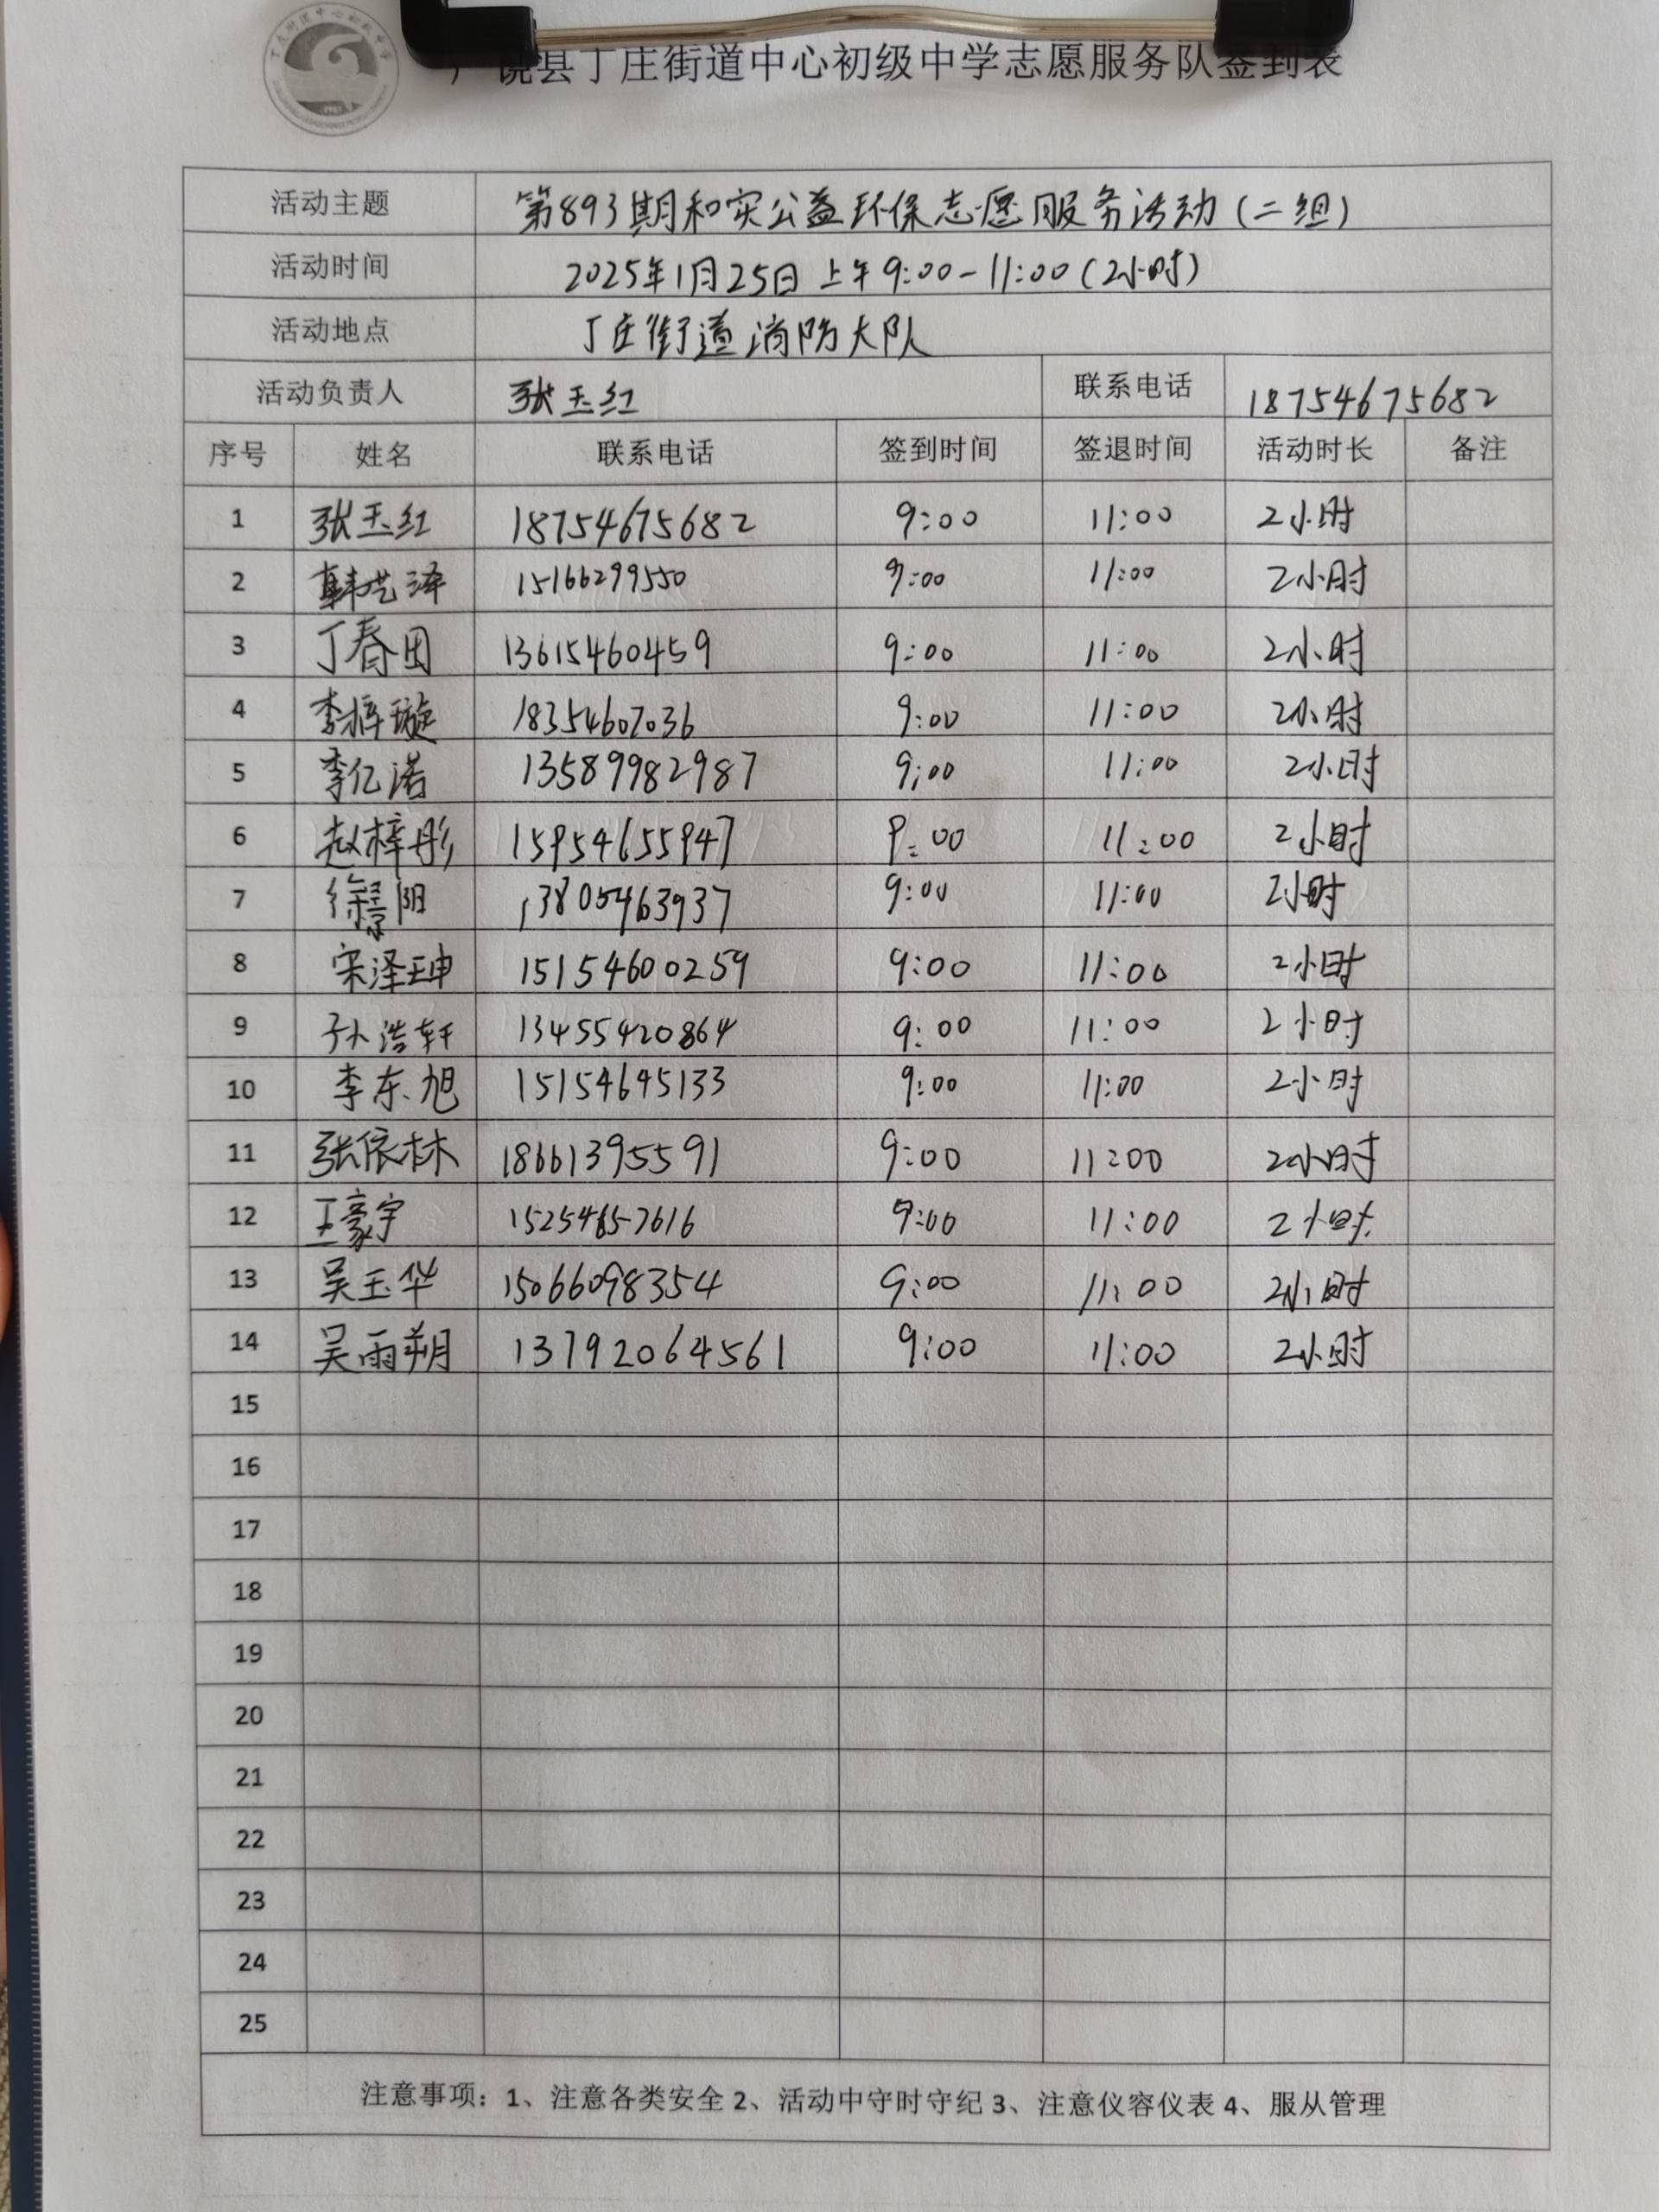 饶县丁庄街道中心初级中学志愿服务队签到表
活动主题 第893期和实公益环保志愿服务活动(二组)
活动时间 2025年1月25日上午9:00-11:00(2小时)
活动地点 丁庄街道消防大队
活动负责人 张玉红 联系电话 18754675682
序号 姓名 联系电话 签到时间 签退时间 活动时长 备注
1 张玉红 18754675682 9:00 11:00 2小时
2 韩艺泽 15166299550 9:00 11:00 2小时
3 丁春田 13615460459 9:00 11:00 2小时
4 李梓璇 18354607036 9:00 11:00 2小时
5 李亿诺 13589982987 9:00 11:00 2小时
6 赵梓彤 15954655947 9:00 11:00 2小时
7 徐景阳 13805463937 9:00 11:00 2小时
8 宋泽珅 15154600259 9:00 11:00 2小时
9 孙浩轩 13455420864 9:00 11:00 2小时
10 李东旭 15154645133 9:00 11:00 2小时
11 张依林 18661395591 9:00 11:00 2小时
12 王豪宇 15254657616 9:00 11:00 2小时
13 吴玉华 15066098354 9:00 11:00 2小时
14 吴雨朔 13792064561 9:00 11:00 2小时
15
16
17
18
19
20
21
22
23
24
25
注意事项：1、注意各类安全 2、活动中守时守纪 3、注意仪容仪表 4、服从管理